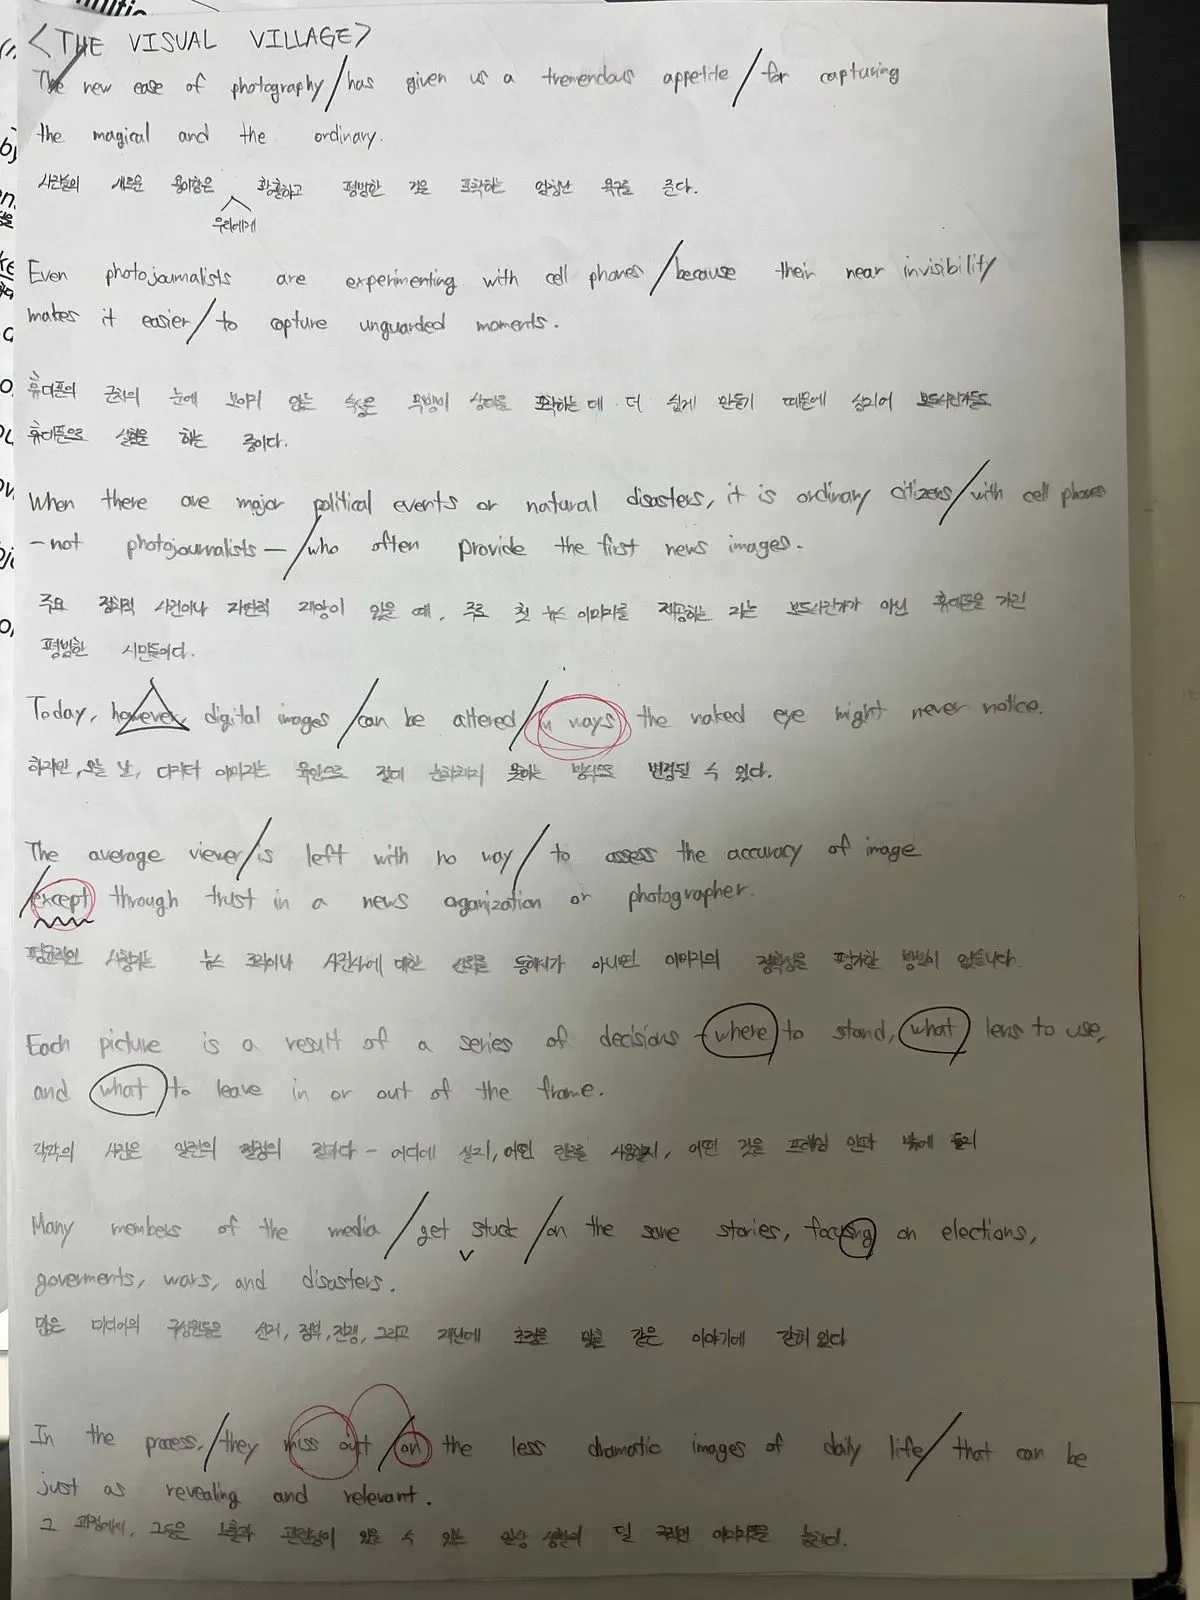 <THE VISUAL VILLAGE>
The new ease of photography / has given us a tremendous appetite / for capturing
the magical and the ordinary.
사진술의 새로운 용이함은 황홀하고 평범한 것을 포착하는 엄청난 욕구를 준다.
우리에게
Even photojournalists are experimenting with cell phones / because their near invisibility
makes it easier / to capture unguarded moments.
휴대폰의 근처의 눈에 보이지 않는 속성은 무방비 상태를 포착하는 데 더 쉽게 만들기 때문에 심지어 보도사진가들도
휴대폰으로 실험을 하는 중이다.
When there are major political events or natural disasters, it is ordinary citizens / with cell phones
- not photojournalists - / who often provide the first news images.
주요 정치적 사건이나 자연적 재앙이 있을 때, 주로 첫 뉴스 이미지를 제공하는 자는 보도사진가가 아닌 휴대폰을 가진
평범한 시민들이다.
Today, however, digital images / can be altered / in ways the naked eye might never notice.
하지만, 오늘 날, 디지털 이미지는 육안으로 절대 눈치채지 못하는 방식으로 변경될 수 있다.
The average viewer / is left with no way / to assess the accuracy of image
/ except through trust in a news oganization or photographer.
평균적인 시청자는 뉴스 조직이나 사진사에 대한 신뢰를 통해서가 아니면 이미지의 정확성을 평가할 방법이 없습니다.
Each picture is a result of a series of decisions - where to stand, what lens to use,
and what to leave in or out of the frame.
각각의 사진은 일련의 결정의 결과다 - 어디에 설지, 어떤 렌즈를 사용할지, 어떤 것을 프레임 안과 밖에 둘지
Many members of the media / get stuck / on the same stories, focusing on elections,
goverments, wars, and disasters.
많은 미디어의 구성원들은 선거, 정부, 전쟁, 그리고 재난에 초점을 맞춘 같은 이야기에 갇혀 있다
In the process, / they miss out / on the less dramatic images of daily life / that can be
just as revealing and relevant.
그 과정에서, 그들은 노출과 관련성이 있을 수 있는 일상 생활의 덜 극적인 이미지를 놓친다.